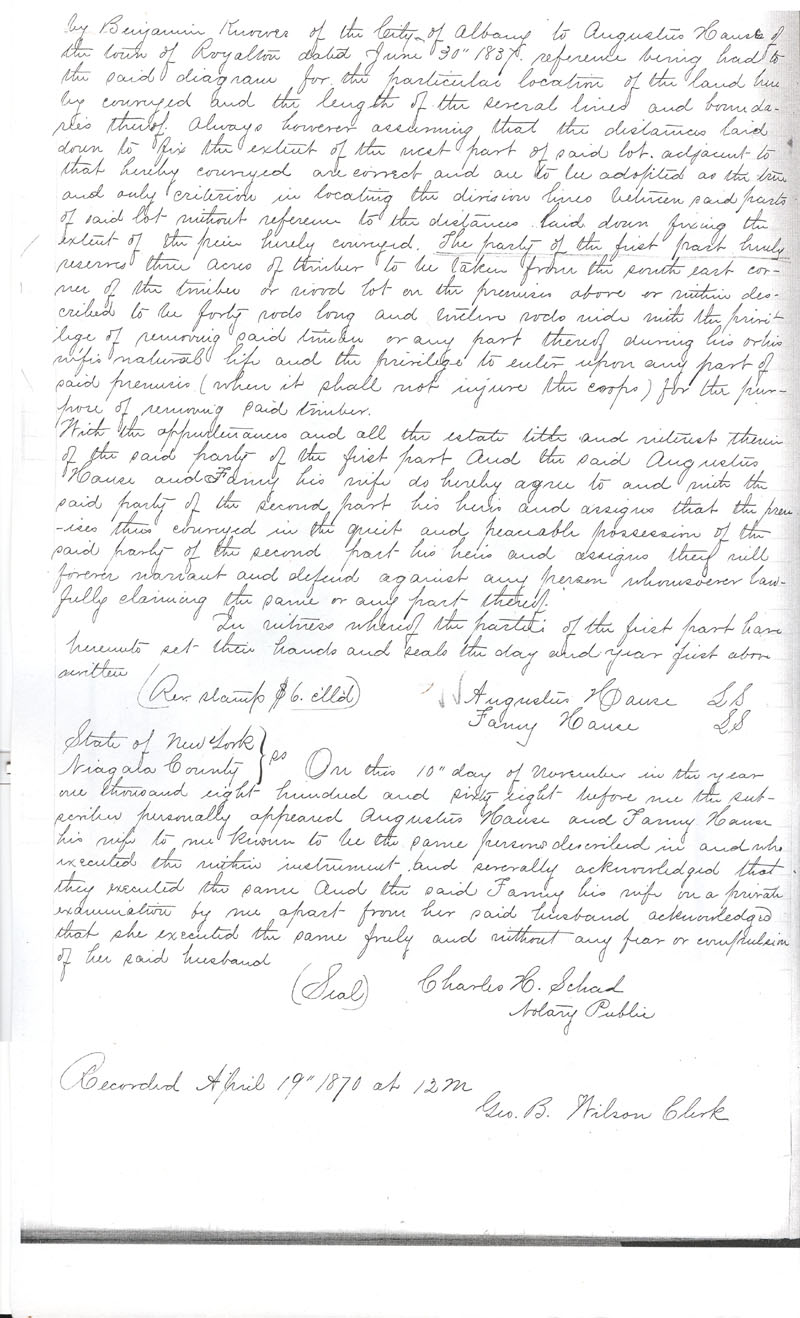 by Benjamin Knower of the City of Albany to Augustus Hause of
the town of Royalton dated June 30" 1837. reference being had to
the said diagram for the particular location of the land here
by conveyed and the length of the several lines and bounda-
ries thereof. Always however assuming that the distances laid
down to fix the extent of the west part of said lot. adjacent to
that hereby conveyed are correct and are to be adopted as the true
and only criterion in locating the division lines between said parts
of said lot without reference to the distances laid down fixing the
extent of the peice hereby conveyed. The party of the first part hereby
reserves three acres of timber to be taken from the south east cor-
ner of the timber or wood lot on the premises above or within des-
cribed to be forty rods long and twelve rods wide with the privi-
lege of removing said timber or any part thereof during his or his
wifes natural life and the privilege to enter upon any part of
said premises (when it shall not injure the crops) for the pur-
pose of removing said timber.
With the appurtenances and all the estate title and interest therein
of the said party of the first part And the said Augustus
Hause and Fanny his wife do hereby agree to and with the
said party of the second part his heirs and assigns that the prem
-ises thus conveyed in the quiet and peaceable possession of the
said party of the second part his heirs and assigns they will
forever warrant and defend against any person whomsoever law-
fully claiming the same or any part thereof.
In witness whereof the parties of the first part have
hereunto set their hands and seals the day and year first above
written
(Rev. stamp $6. clld) Augustus Hause LS
Fanny Hause LS
State of New York
Niagara County } ss On this 10" day of November in the year
one thousand eight hundred and sixty eight before me the sub-
scriber personally appeared Augustus Hause and Fanny Hause
his wife to me known to be the same persons described in and who
executed the within instrument and severally acknowledged that
they executed the same And the said Fanny his wife on a private
examination by me apart from her said husband acknowledged
that she executed the same freely and without any fear or compulsion
of her said husband
(Seal) Charles H. Schad
Notary Public
Recorded April 19" 1870 at 12 M
Geo. B. Wilson Clerk